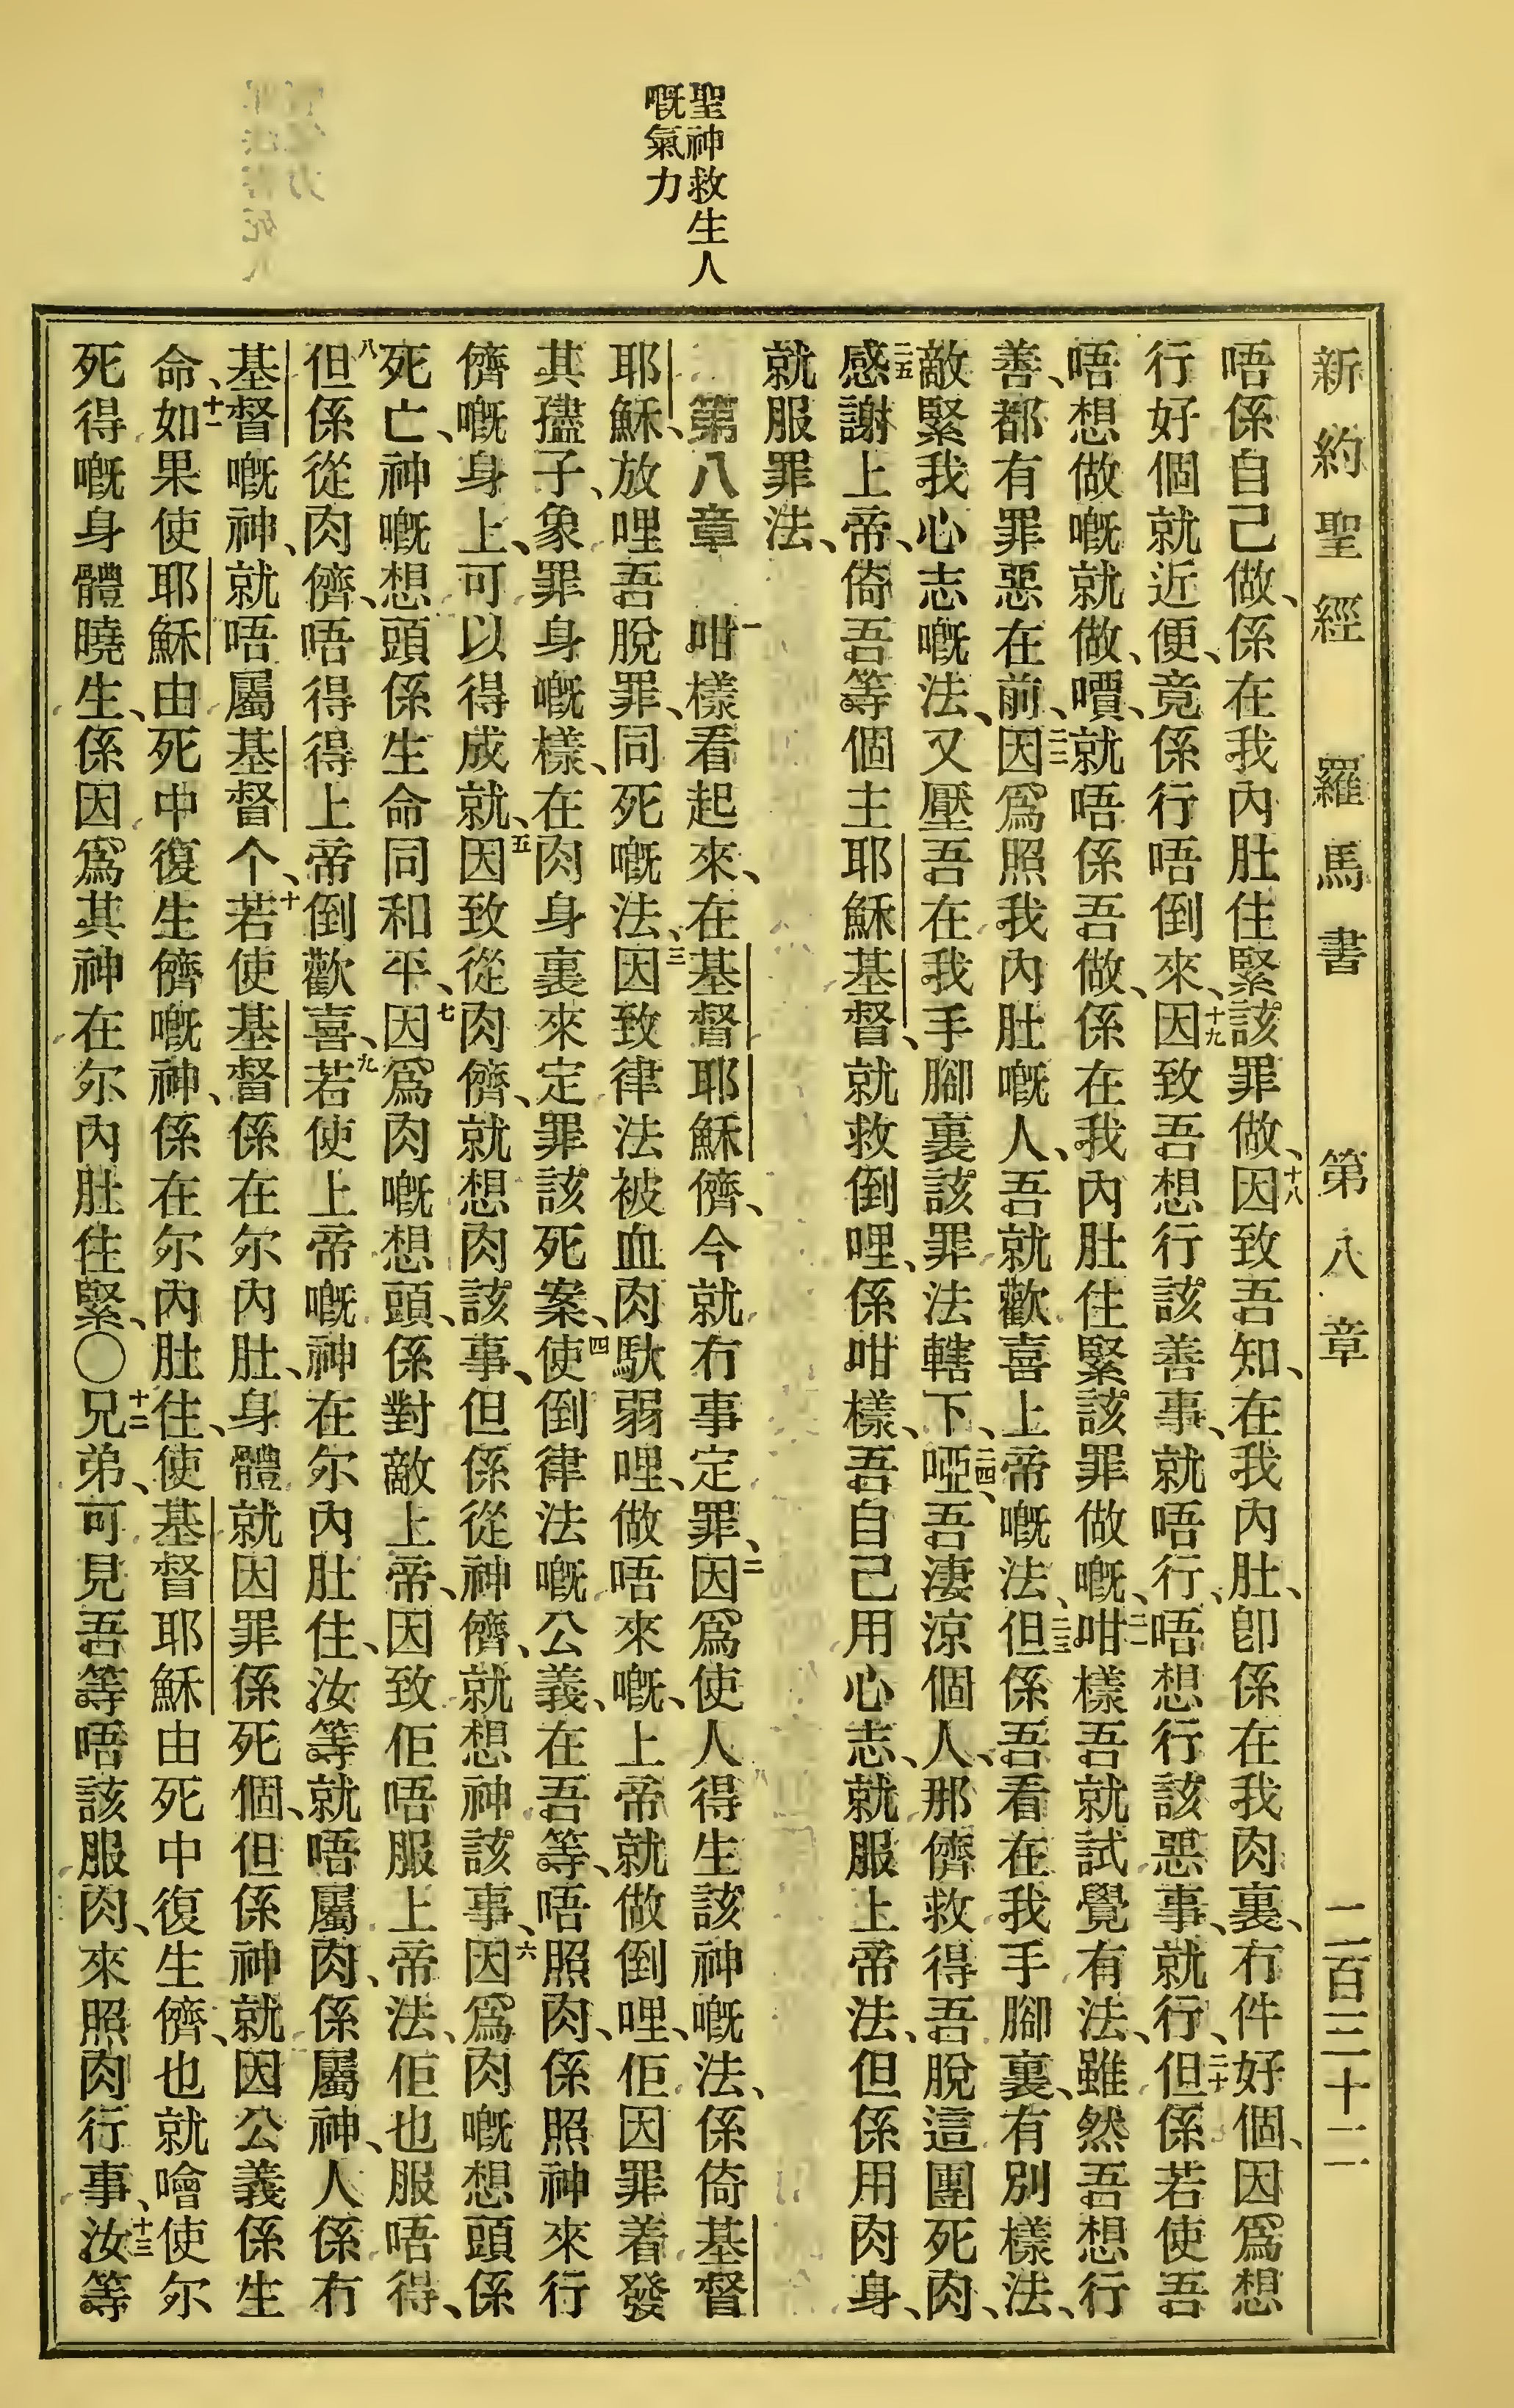 聖神救生人
嘅氣力
新約聖經 羅馬書 第八章 二百三十二
唔係自己做、係在我內肚住緊該罪做、十八因致吾知、在我內肚、卽係在我肉裏、冇件好個、因爲想
行好個就近便、竟係行唔倒來、十九因致吾想行該善事、就唔行、唔想行該惡事、就行、二十但係若使吾
唔想做嘅就做、嘪、就唔係吾做、係在我內肚住緊該罪做嘅、二一咁樣吾就試覺有法、雖然吾想行
善、都有罪惡在前、二二因爲照我內肚嘅人、吾就歡喜上帝嘅法、二三但係吾看在我手腳裏、有別樣法、
敵緊我心志嘅法、又壓吾在我手腳裏該罪法轄下、二四啞、吾淒涼個人、那儕救得吾脫這團死肉、
二五感謝上帝、倚吾等個主耶穌基督、就救倒哩、係咁樣、吾自己用心志、就服上帝法、但係用肉身、
就服罪法、
第八章 一咁樣看起來、在基督耶穌儕、今就冇事定罪、二因爲使人得生該神嘅法、係倚基督
耶穌、放哩吾脫罪、同死嘅法、三因致律法被血肉馱弱哩、做唔來嘅、上帝就做倒哩、佢因罪着發
其孻子、象罪身嘅樣、在肉身裏來定罪該死案、四使倒律法嘅公義、在吾等、唔照肉、係照神來行
儕嘅身上、可以得成就、五因致從肉儕、就想肉該事、但係從神儕、就想神該事、六因爲肉嘅想頭係
死亡、神嘅想頭係生命同和平、七因爲肉嘅想頭、係對敵上帝、因致佢唔服上帝法、佢也服唔得、
八但係從肉儕、唔得得上帝倒歡喜、九若使上帝嘅神在尔內肚住、汝等就唔屬肉、係屬神、人係冇
基督嘅神、就唔屬基督个、十若使基督係在尔內肚、身體就因罪係死個、但係神就因公義係生
命、十一如果使耶穌由死中復生儕嘅神、係在尔內肚住、使基督耶穌由死中復生儕、也就噲使尔
死得嘅身體曉生、係因爲其神在尔內肚住緊、○十二兄弟、可見吾等唔該服肉、來照肉行事、十三汝等